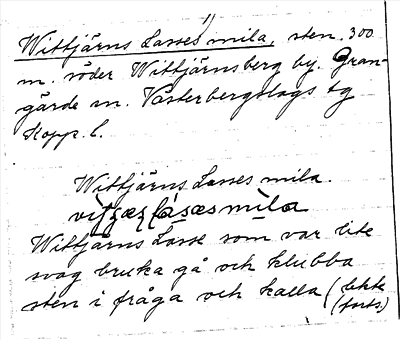 Wittjärns Lasses mila, sten. 300
m. söder Wittjärnsberg by. Gran-
gärde sn. Västerbergslags tg
Kopp. l.
Wittjärns Lasses mila.
Wittjärns Lasse som var lite
svag bruka gå och klubba
sten i fråga och kalla (lekte
(forts.)